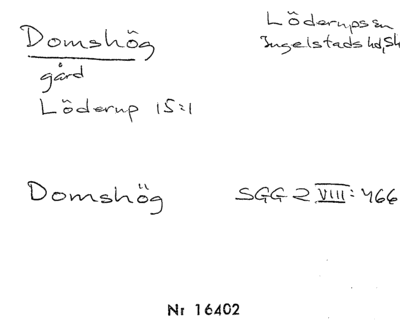 Domshög
Löderups sn
Ingelstads hd, Sk
gård
Löderup 15:1
Domshög
SGG 2 VIII: 466
Nr 16402